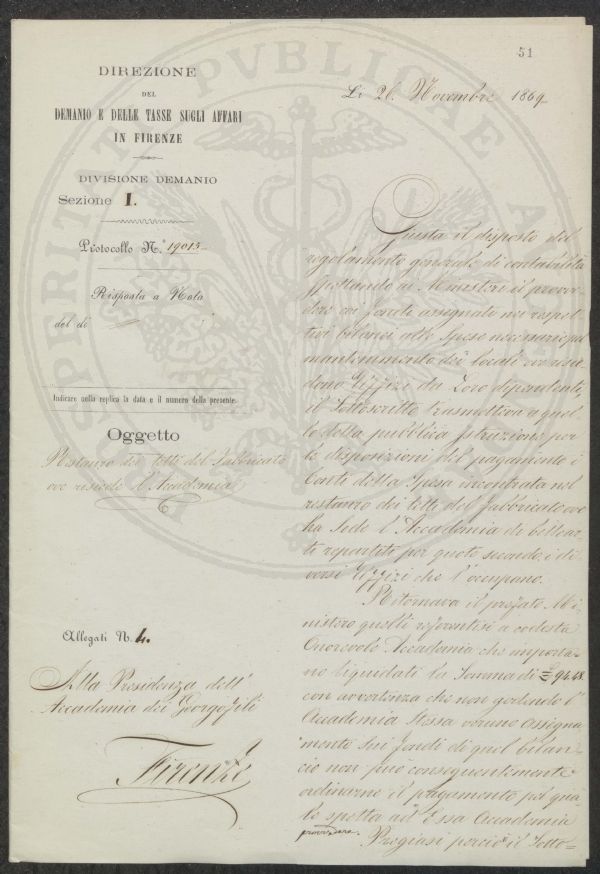 51
DIREZIONE
DEL
DEMANIO E DELLE TASSE SUGLI AFFARI
IN FIRENZE
DIVISIONE DEMANIO
Sezione I.
Protocollo N.° 19015
Risposta a Nota
del dì
Indicare nella replica la data e il numero della presente.
Oggetto
Restauro dei tetti del Fabbricato
ove risiede l'Accademia
Allegati N. 4.
Alla Presidenza dell'
Accademia dei Georgofili
Firenze
Li 26. Novembre 1869
Giusta il disposto del
regolamento generale di contabilità
spettando ai Ministeri il provve
dere coi fondi assegnati nei rispet
tivi bilanci alle Spese necessarie pel
mantenimento dei locali ove risie
dono Uffizi da Loro dipendenti,
il Sottoscritto trasmetteva a quel
lo della pubblica Istruzione per
le disposizioni del pagamento i
Conti della Spesa incontrata nel
restauro dei tetti del fabbricato ove
ha Sede l'Accademia di bellear
ti repartiti per quote secondo i di
versi Uffizi che l'occupano.
Ritornava il prefato Mi
nistero quelli referentisi a codesta
Onorevole Accademia che importa
no liquidati la Somma di £ 94.48
con avvertenza che non godendo l'
Accademia Stessa veruno assegna
mento Sui fondi di quel bilan
cio non può conseguentemente
ordinarne il pagamento pel qua
le spetta ad Essa Accademia
provvedere.
Pregiasi perciò il Sotto=
PROSPERITATI PVBLICAE